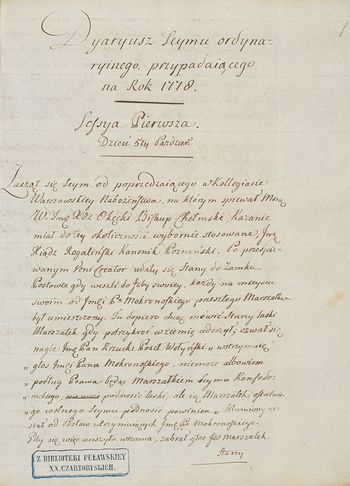 Dyaryusz Seymu ordyna-
ryinego, przypadaiącego
na Rok 1778.
Sessya Pierwsza.
Dzień 5ty Paździer:
Zaczął się Seym od poprzedzaiącego w Kollegiacie
Warszawskiey Nabożeństwa, na którym spiewał Mszą
W. Jmć Xdz Okęcki Biskup Chełmski, kazanie
miał do tey okoliczności wybornie stosowane, Jmć
Xiądz Rogaliński Kanonik Poznański. Po prześpie-
wanym Veni Creator udały się Stany do Zamku.
Posłowie gdy weszli do Jzby swoiey, każdy na mieyscu
swoim od Jmci Pa Mokronoskiego przeszłego Marszałka
był umieszczony. Tu dopiero chcąc mówić Starey laski
Marszałek gdy potrzykroć w ziemię uderzył, ozwał się
nagle Jmć Pan Krzucki Poseł Wołyński „wstrzymuię
„głos Jmci Pana Mokronoskiego, niemoże albowiem
„podług Prawa będąc Marszałkiem Seymu Konfede-
„rackiego, podnosić laski, ale ią Marszałek ostatnie-
„go wolnego Seymu podnosić powinien.
stał od Posłów utrzymuiących Jmć Pa Mokronoskiego.
Gdy się więc wszczęła wrzawa, zabrał głos Jmć Marszałek
Stary
1
Z BIBLIOTEKI PUŁAWSKIEJ
XX. CZARTORYSKICH.